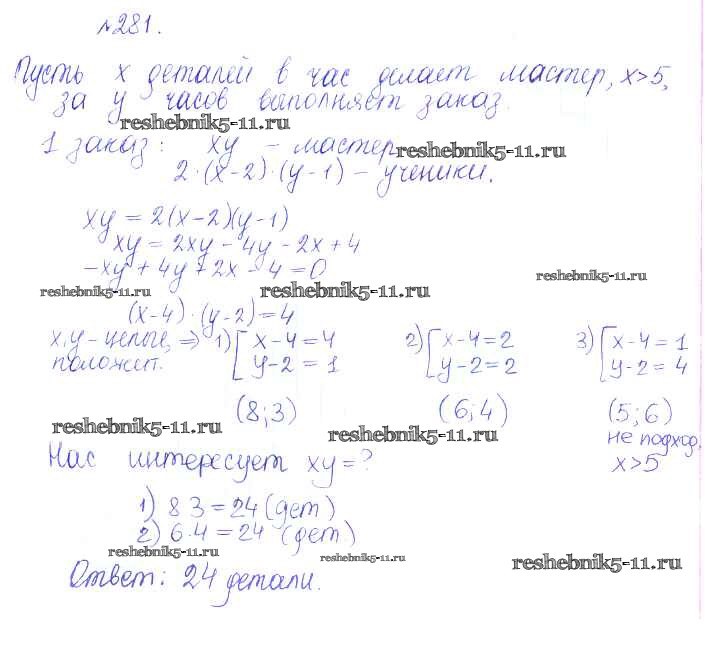 №281.
Пусть x деталей в час делает мастер, x>5,
за y часов выполняет заказ.
reshebnik5-11.ru
1 заказ: xy - мастер
reshebnik5-11.ru
2·(x-2)·(y-1) - ученики.
xy = 2(x-2)(y-1)
xy = 2xy - 4y - 2x + 4
-xy + 4y + 2x - 4 = 0
reshebnik5-11.ru
reshebnik5-11.ru
reshebnik5-11.ru
(x-4)·(y-2)=4
x,y - целые, => 1) [ x-4=4 2) [ x-4=2 3) [ x-4=1
положит. y-2=1 y-2=2 y-2=4
(8;3) (6;4) (5;6)
reshebnik5-11.ru
reshebnik5-11.ru
не подход,
x>5
Нас интересует xy=?
1) 8 3 = 24 (дет)
2) 6·4 = 24 (дет)
reshebnik5-11.ru
reshebnik5-11.ru
reshebnik5-11.ru
Ответ: 24 детали.